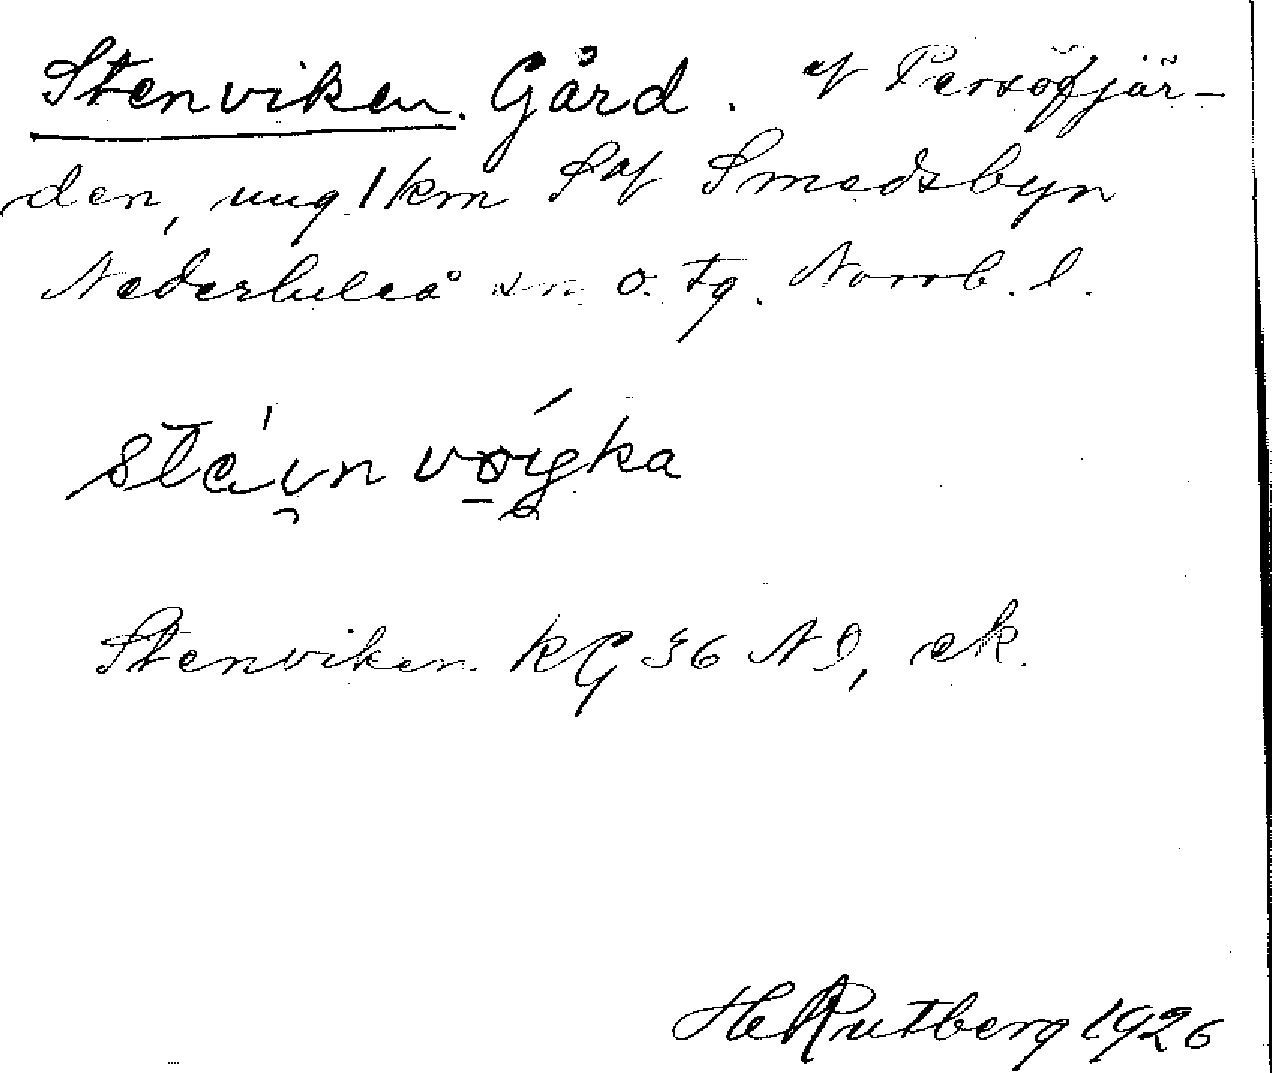 Stenviken. Gård. af Persöfjär-
den, ung. 1 km S af Smedsbyn
Nederluleå sn o. tg. Norrb. l.
Stenviken KG 36 NI, ek.
HeRutberg 1926